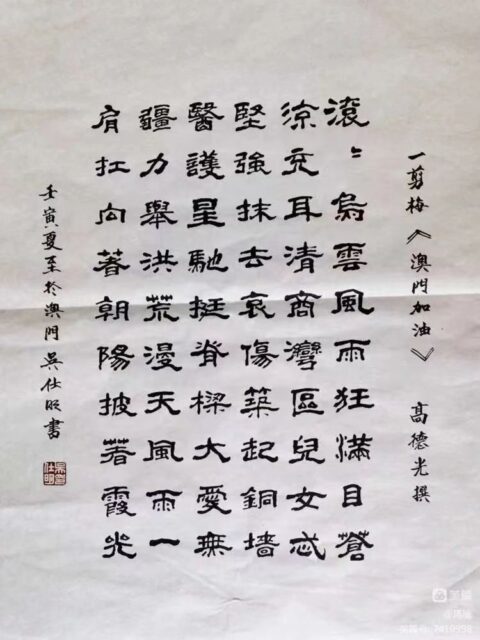 一剪梅《澳門加油》 高德光撰
滾〻烏雲風雨狂滿目蒼
涼充耳清商灣區兒女忒
堅強抹去哀傷築起銅墙
醫護星馳挺脊樑大愛無
疆力舉洪荒漫天風雨一
肩扛向著朝陽披著霞光
壬寅夏至於澳門 吳仕明書
美篇